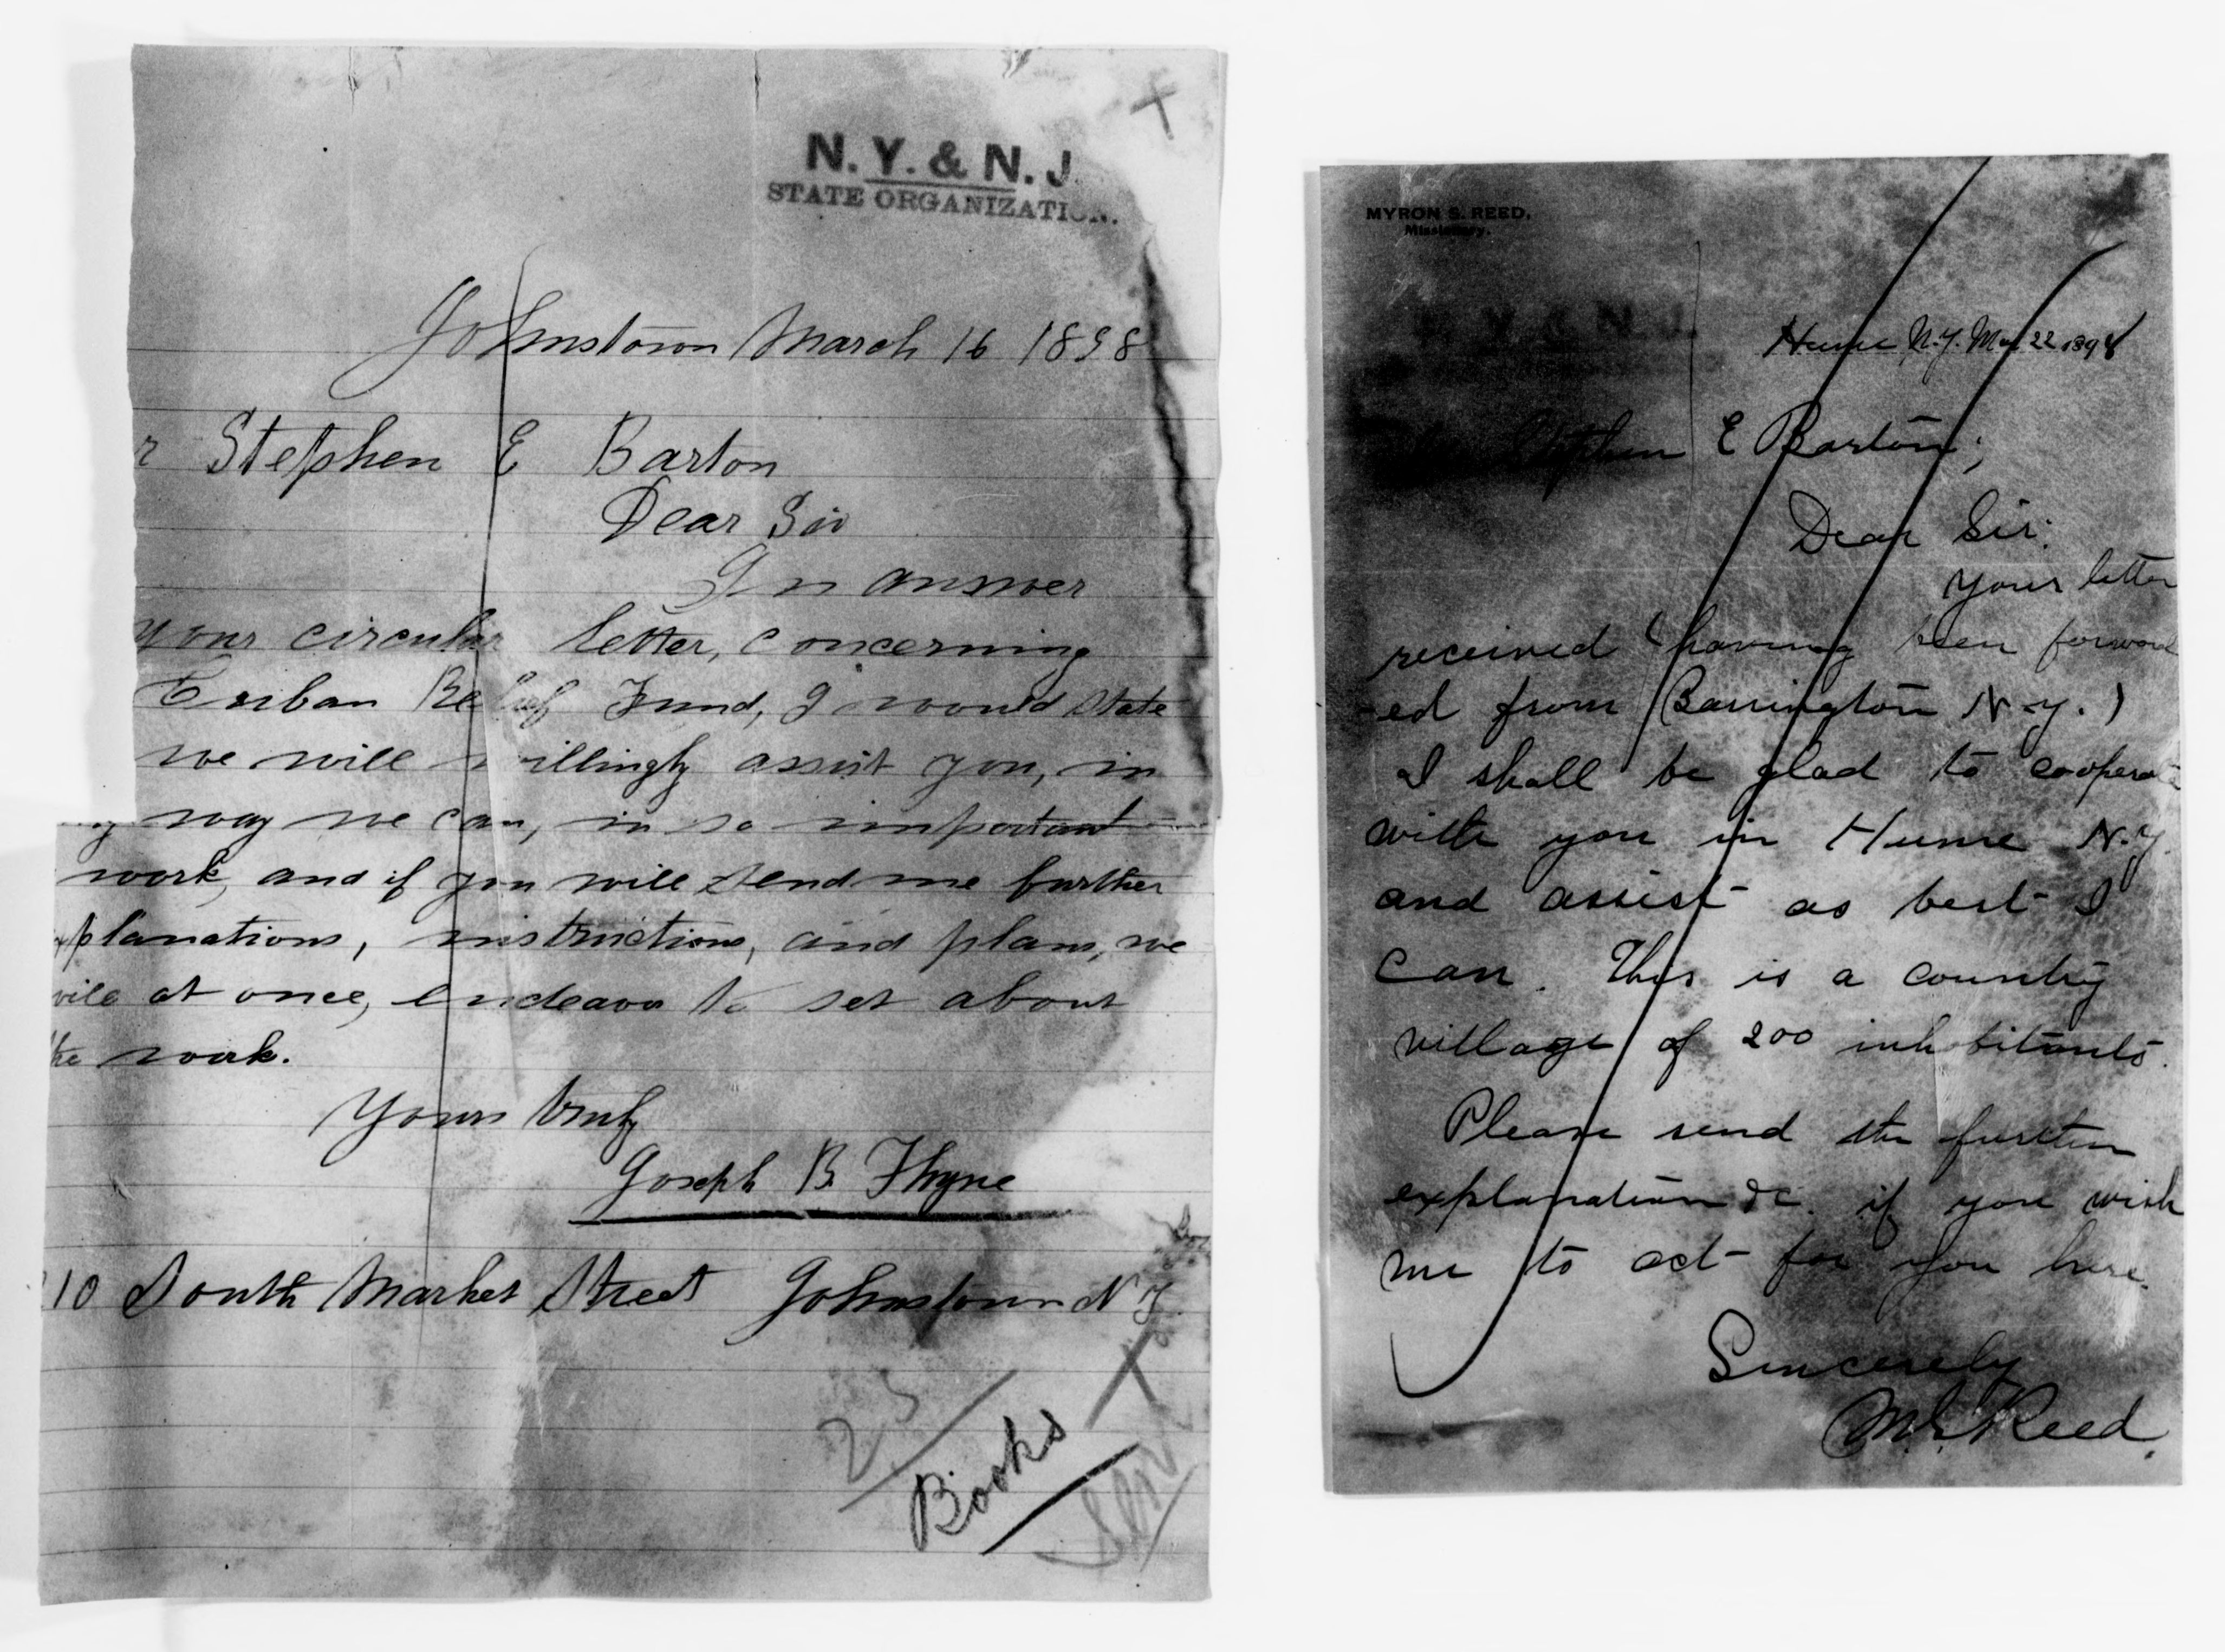 N. Y. & N. J.
STATE ORGANIZATION.
Johnstown March 16 1898
r Stephen E Barton
Dear Sir
In answer
your circular letter, concerning
Cuban Relief Fund, I would state
we will willingly assist you, in
way we can, in so important
work, and if you will send me further
xplanations, instructions, and plans, we
will at once, endeavor to set about
the work.
Yours truly
Joseph B. Thyne
10 South Market Street Johnstown N Y.
23
Books
Sent
MYRON S. REED,
Missionary.
N. Y. & N. J.
Hume N.Y. Mar 22 1898
Stephen E Barton;
Dear Sir:
Your letter
received (having been forward
-ed from Barrington N-Y.)
I shall be glad to cooperate
with you in Hume N.Y.
and assist as best I
can. This is a country
village of 200 inhabitants.
Please send the further
explanation &c. if you wish
me to act for you here.
Sincerely
M.S. Reed.